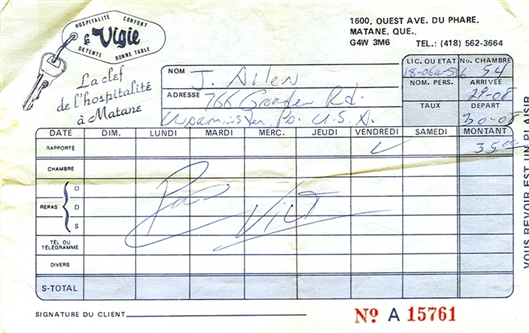 HOSPITALITÉ CONFORT
La Vigie
DÉTENTE BONNE TABLE
La clef
de l'hospitalité
à Matane
1600, OUEST AVE. DU PHARE,
MATANE, QUE.,
G4W 3M6 TEL.: (418) 562-3664
NOM J. Allen
ADRESSE 766 Rd.
U.S.A.
LIC. OU ETAT No. CHAMBRE
54
NOM. PERS. ARRIVÉE
29-08
TAUX DEPART
30-08
DATE DIM. LUNDI MARDI MERC. JEUDI VENDREDI SAMEDI MONTANT
RAPPORTE 35.00
CHAMBRE
D
REPAS D
S
TÉL OU
TÉLÉGRAMME
DIVERS
S-TOTAL
SIGNATURE DU CLIENT
No A 15761
VOUS REVOIR EST UN PLAISIR